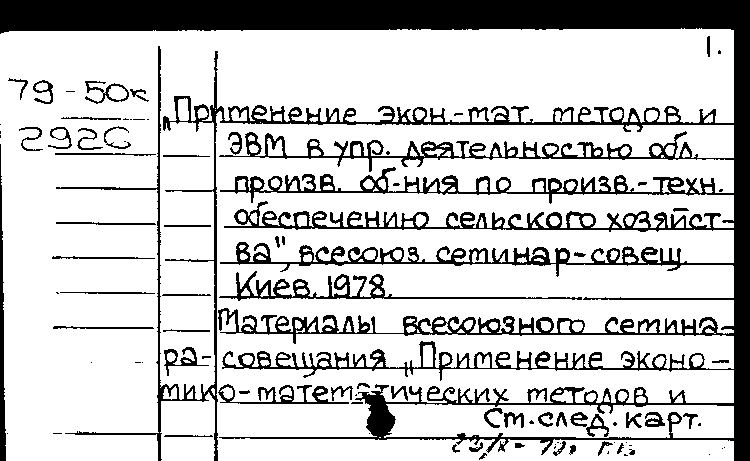 1.
79-50к
2926
„Применение экон.-мат. методов и
ЭВМ в упр. деятельностью обл.
произв. об-ния по произв.-техн.
обеспечению сельского хозяйст-
ва", всесоюз. семинар-совещ.
Киев. 1978.
Материалы всесоюзного семина-
ра-совещания „Применение эконо-
мико-математических методов и
См. след. карт.